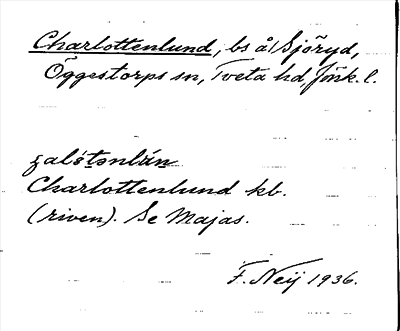 Charlottenlund, bs å Sjöryd,
Öggestorps sn, Tveta hd, Jönk. l.
Charlottenlund kb.
(riven). Se Majas.
F. Neij 1936.